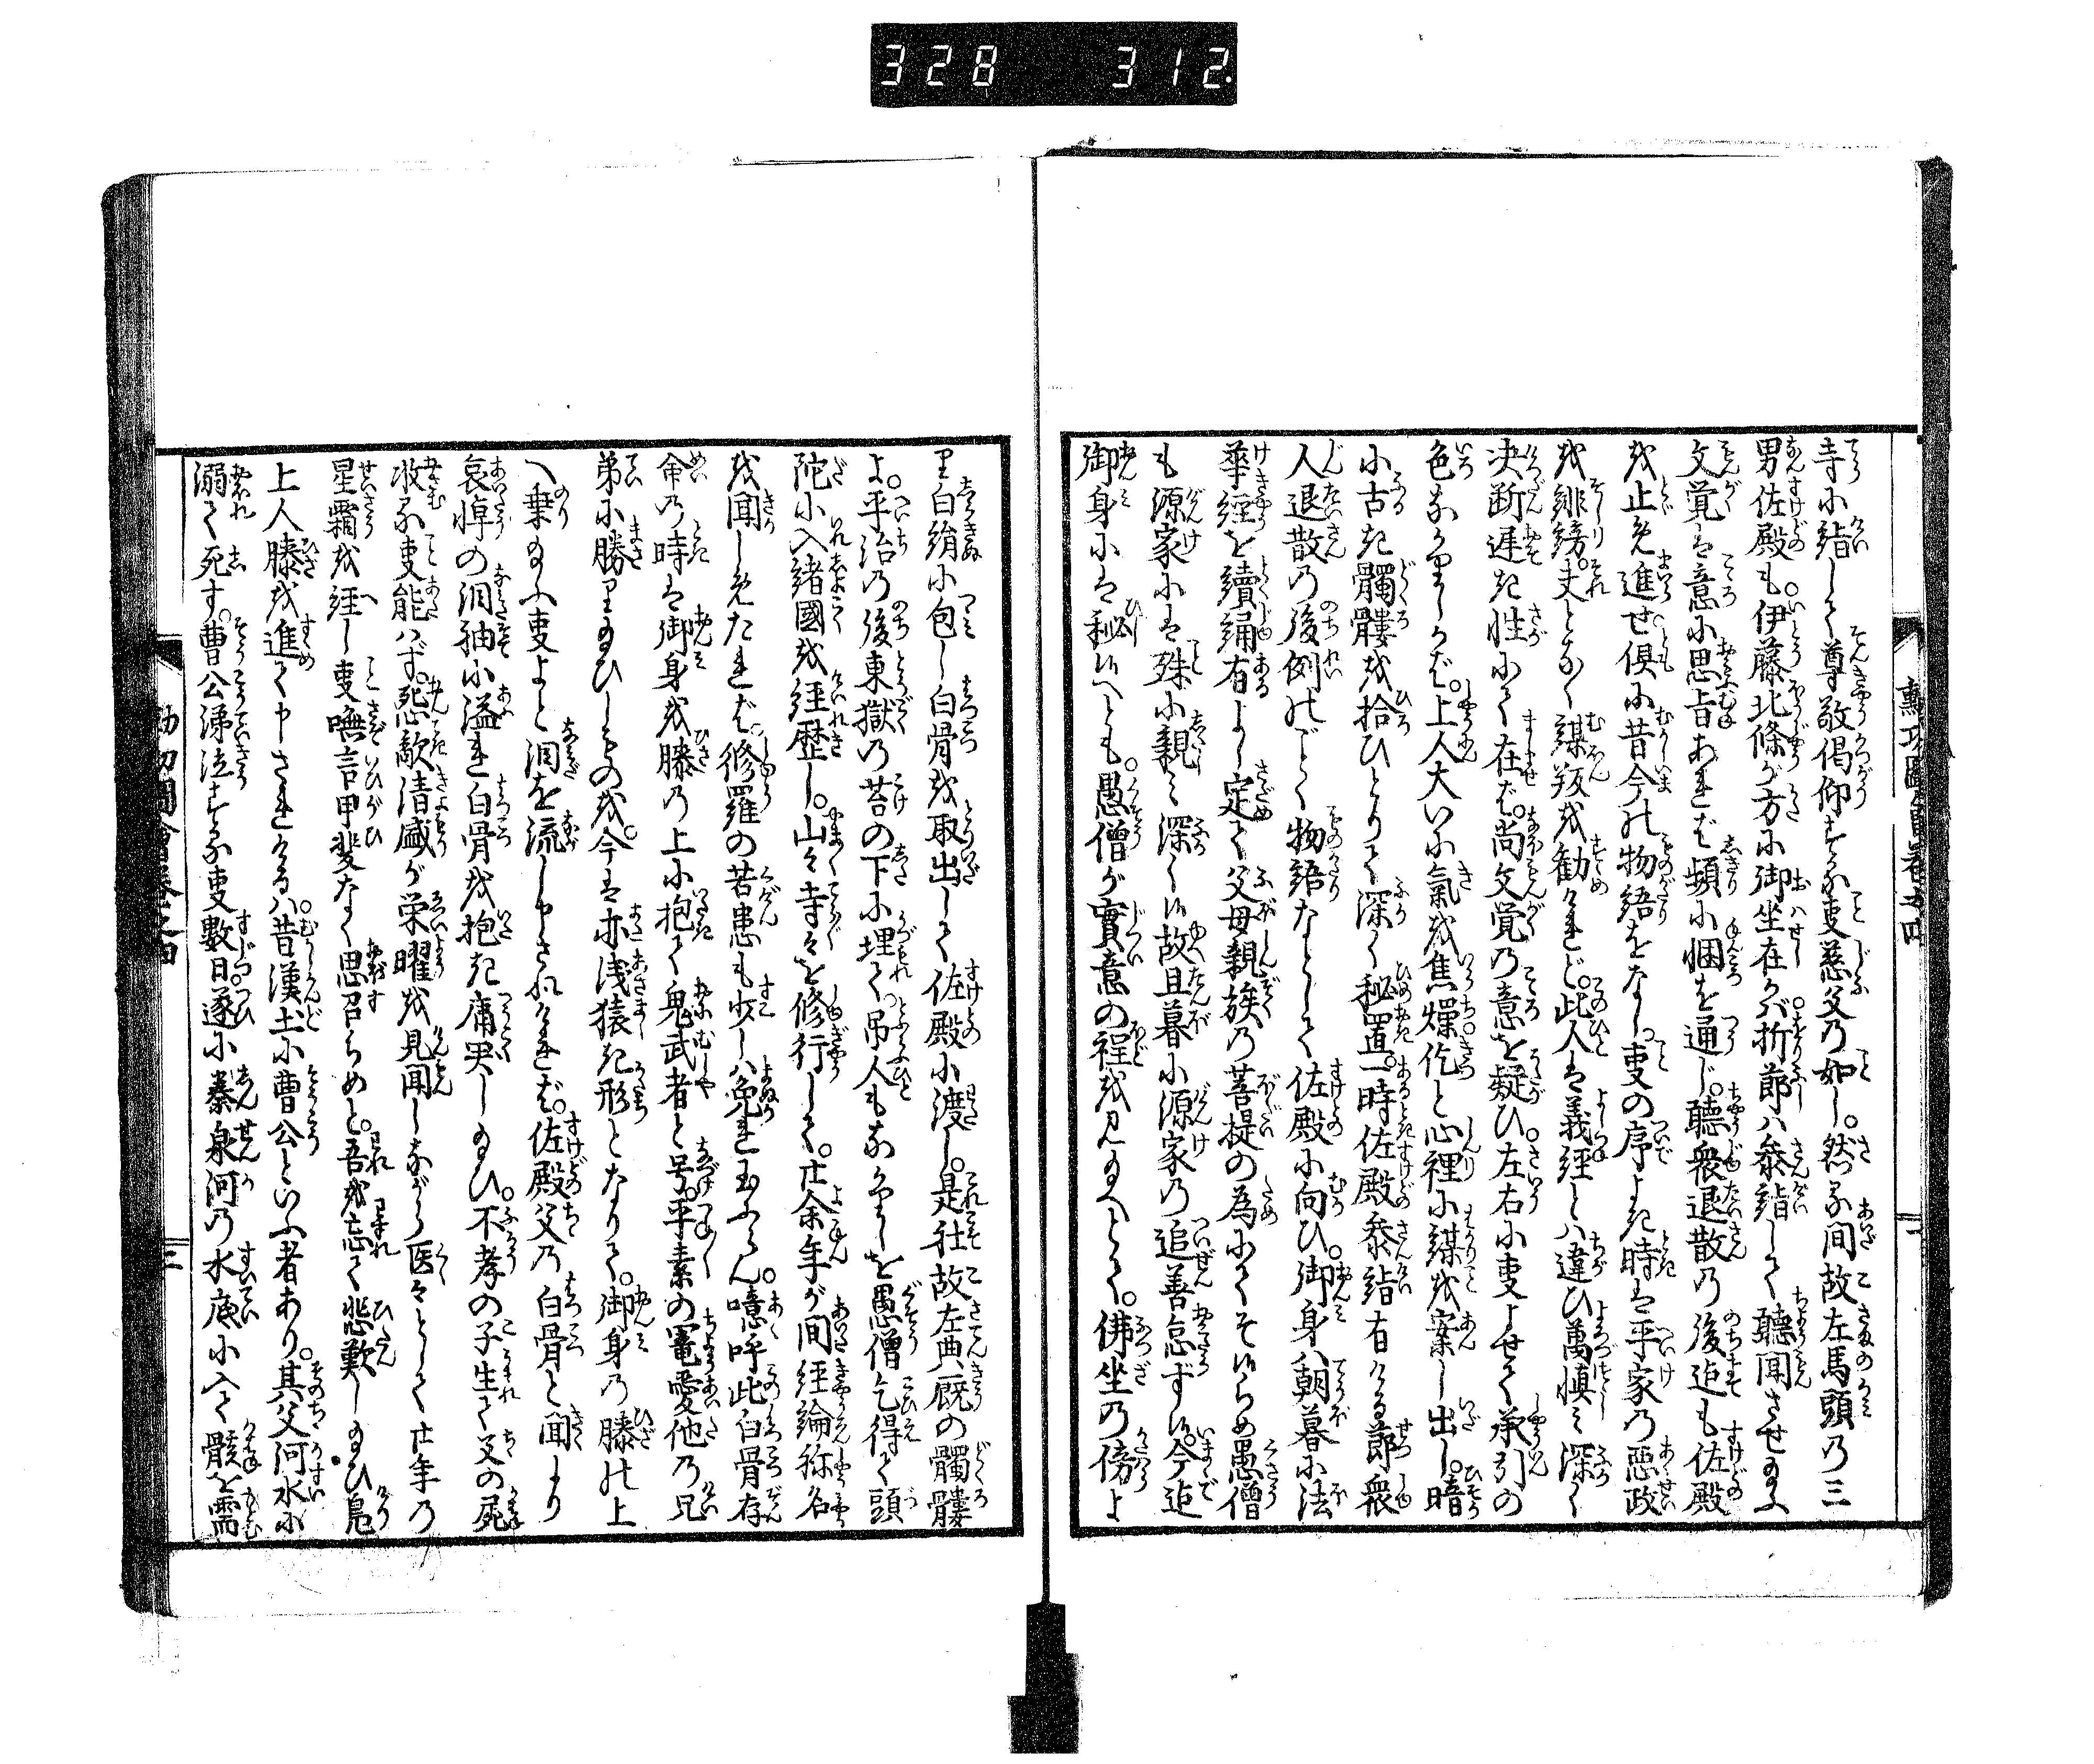 328 312.
寺に詣して尊敬偈仰する叓慈父の如し。然る間故左馬頭の三
男佐殿も。伊藤北條が方に御坐在かバ折節ハ参詣して聴聞させ給ふ
文覚は意に思旨あれば頻に悃を通じ。聴衆退散の後迠も佐殿
を止免進せ倶に昔今の物語をなし。叓の序よき時は平家の悪政
を誹謗。丈となく謀叛を勧けれど。此人は義経とハ違ひ萬慎み深く
决断遅き性にて在ば。尚文覚の意を疑ひ。左右に叓よせて承引の
色なかりしかば。上人大いに氣を焦燥仡と心裡に謀を案じ出し。暗
に古き髑髏を拾ひとりて深く秘置。一時佐殿参詣有ける節衆
人退散の後例のごく物語なとして佐殿に向ひ。御身ハ朝暮に法
華経を續誦有よし定て父母親族の菩提の為にてそ候らめ愚僧
も源家には殊に親く深く候故且暮に源家の追善怠ず候。今迠
御身には秘候へとも。愚僧が實意の程を見給へとて。佛坐の傍よ
り白絹に包し白骨を取出して佐殿に渡し。是社故左典厩の髑髏
よ。平治の後東獄の苔の下に埋て吊人もなかりしを愚僧乞得て頭
陀に入諸國を経歴し。山々寺々を修行して。廿余年が間経論称名
を聞しめたれば。修羅の苦患も少しハ免れ玉ふらん。噫呼此白骨存
命の時は御身を膝の上に抱て鬼武者と号。平素の寵愛他の兄
弟に勝り給ひしものを。今は亦浅猿き形となりて。御身の膝の上
へ乗給ふ叓よと泪を流し申されければ。佐殿父の白骨と聞より
哀悼の泪袖に溢れ白骨を抱き慟哭し給ひ。不孝の子生て父の屍
収る叓能ハず。怨敵清盛が栄曜を見聞しながら医々として廿年の
星霜を経し叓嘸言甲斐なく思召らめと。吾を忘て悲歎し給ひ鳬
上人膝を進て申されけるハ。昔漢土に曹公といふ者あり。其父河水に
溺て死す。曹公涕泣する叓數日。遂に秦泉河の水底に入て骸を需